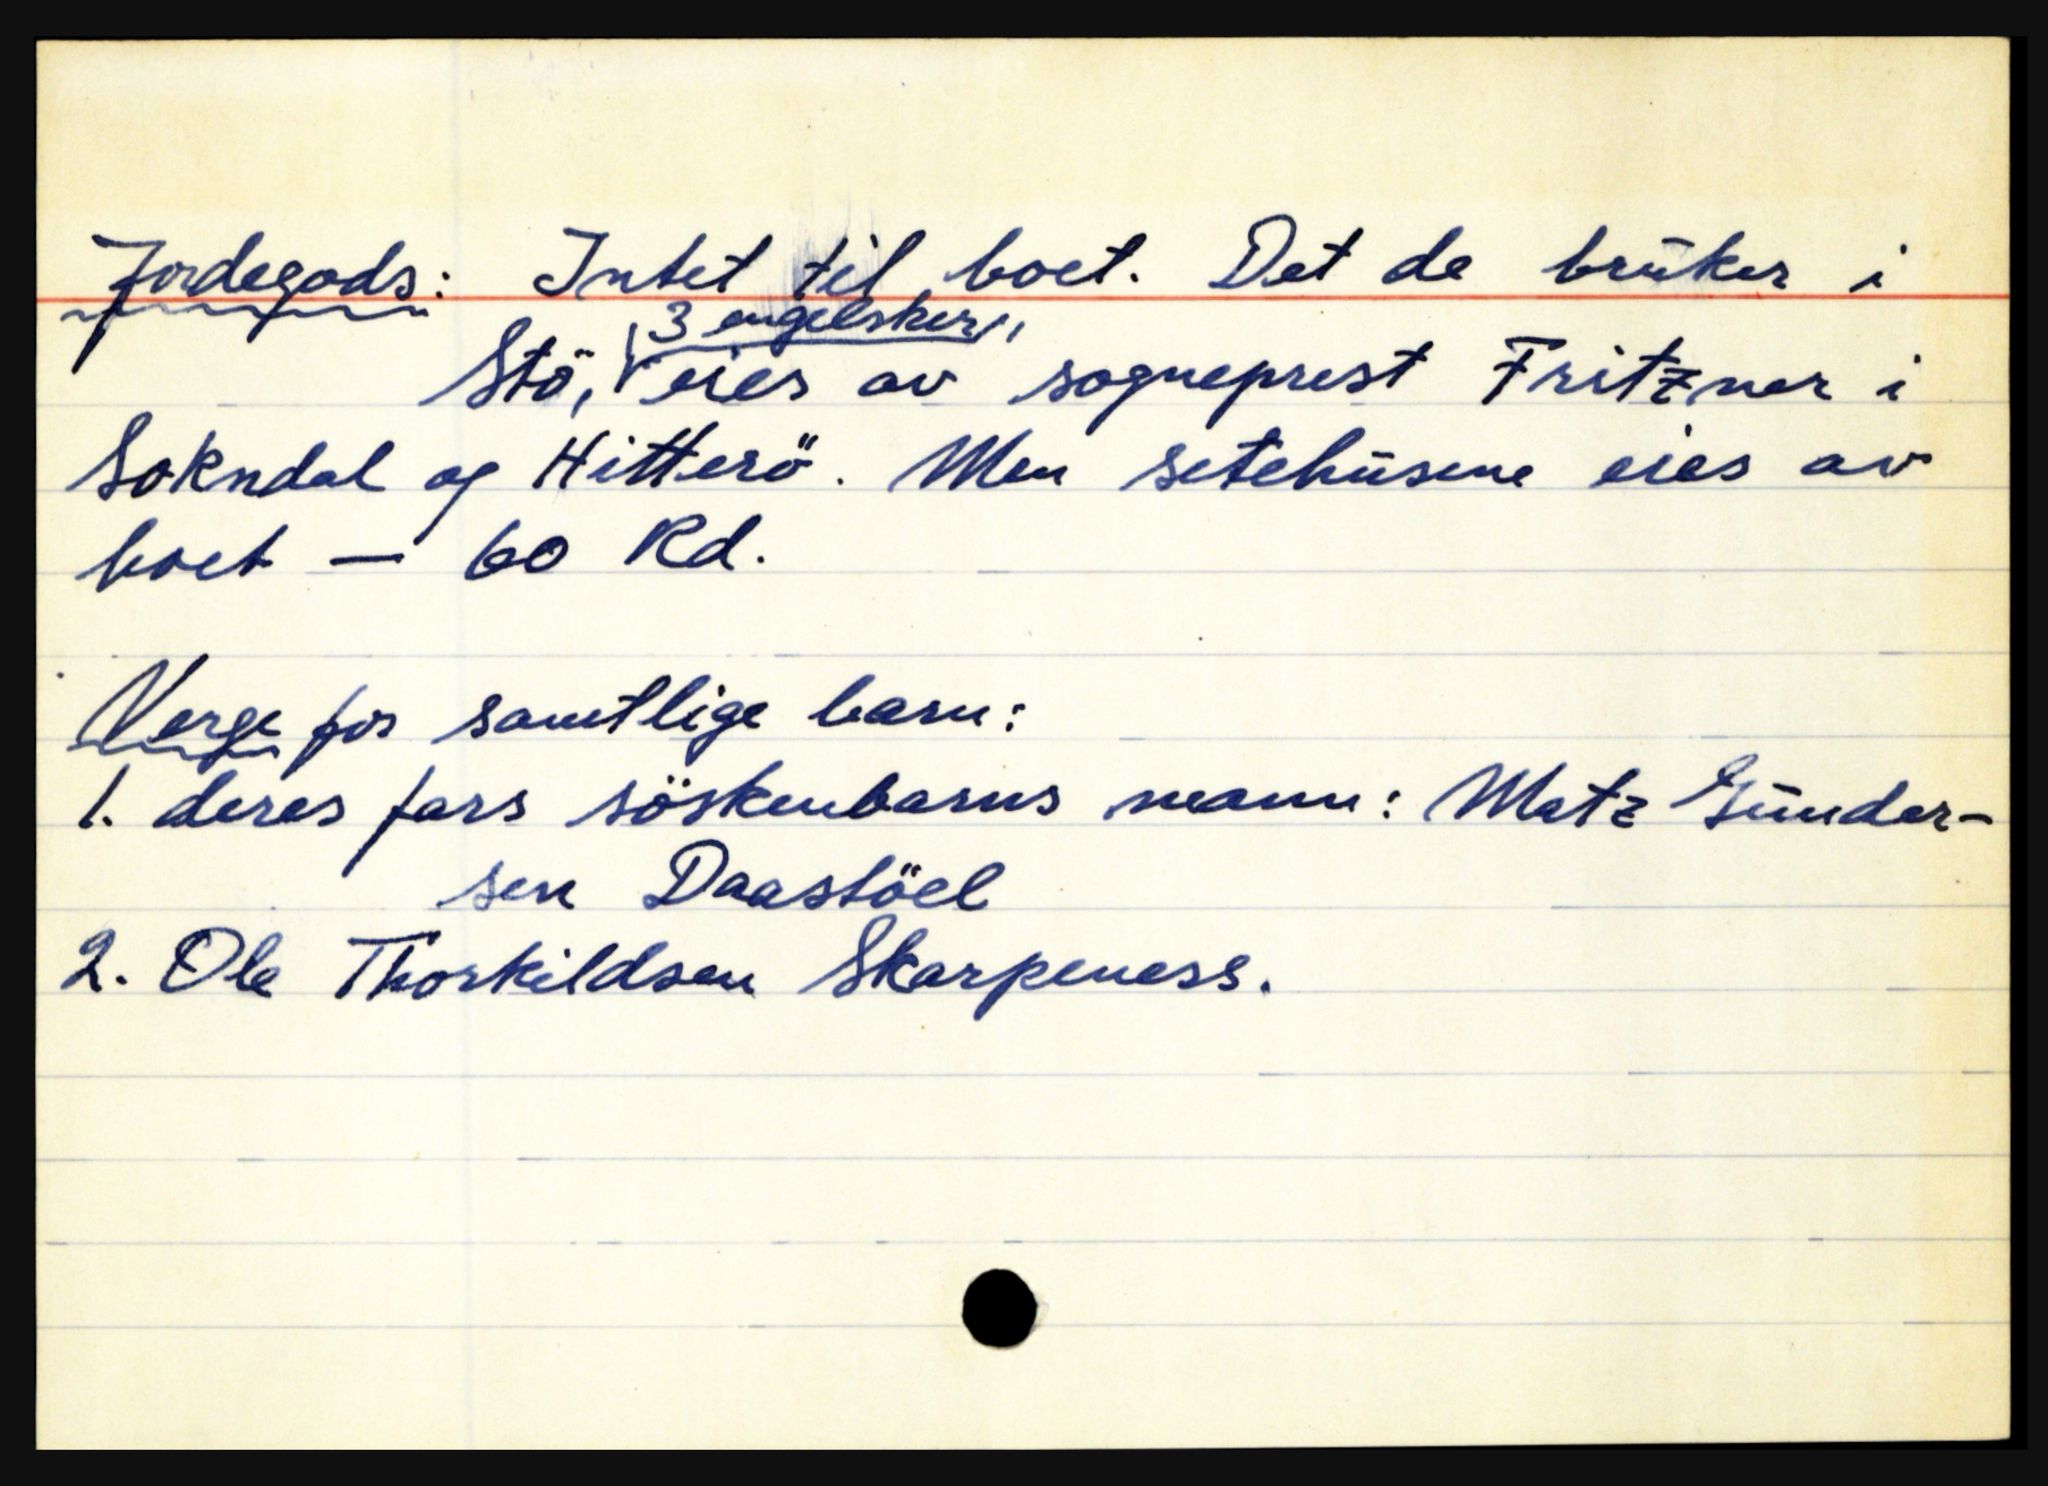 Jordegods: Intet til boet. Det de brūker i
Stö, "3 engelsker" eies av sogneprest Fritzner i
Sokndal og Hitterö. Men setehūsene eies av
boet — 60 Rd.
Verge for samtlige barn:
1. deres fars söskenbarns mann: Matz Gūnder-
sen Daastöel
2. Ole Thorkildsen Skarpeness.